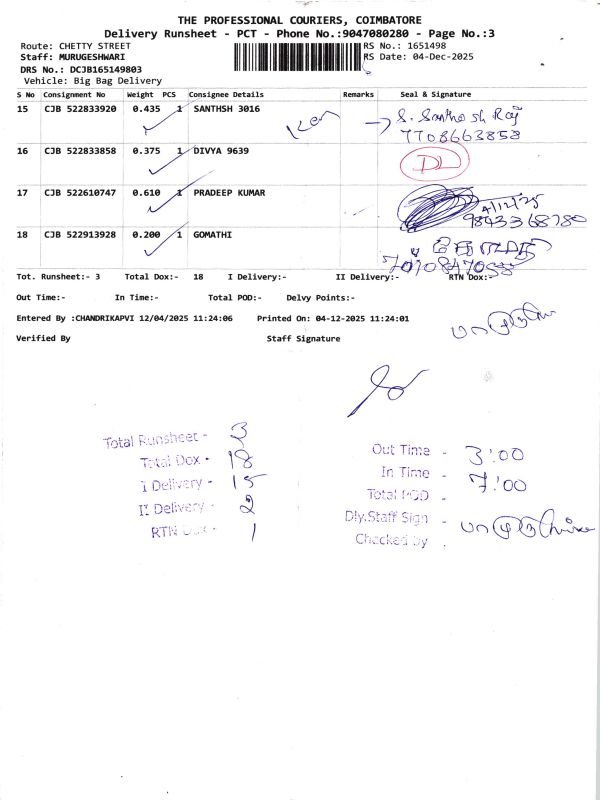 THE PROFESSIONAL COURIERS, COIMBATORE
Delivery Runsheet - PCT - Phone No.:9047080280 - Page No.:3
Route: CHETTY STREET
RS No.: 1651498
Staff: MURUGESHWARI
RS Date: 04-Dec-2025
DRS No.: DCJB165149803
Vehicle: Big Bag Delivery
S No Consignment No Weight PCS Consignee Details Remarks Seal & Signature
15 CJB 522833920 0.435 1 SANTHSH 3016 S. Santhosh Raj
7708663858
16 CJB 522833858 0.375 1 DIVYA 9639 DL
17 CJB 522610747 0.610 1 PRADEEP KUMAR 4/12/25
9843368780
18 CJB 522913928 0.200 1 GOMATHI
Tot. Runsheet:- 3 Total Dox:- 18 I Delivery:- II Delivery:- RTN Dox:-
Out Time:- In Time:- Total POD:- Delvy Points:-
Entered By :CHANDRIKAPVI 12/04/2025 11:24:06 Printed On: 04-12-2025 11:24:01
Verified By Staff Signature
Total Runsheet - 3
Total Dox - 18
I Delivery - 15
II Delivery - 2
RTN Dox - 1
Out Time - 3:00
In Time - 7:00
Total POD -
Dly.Staff Sign -
Checked by -